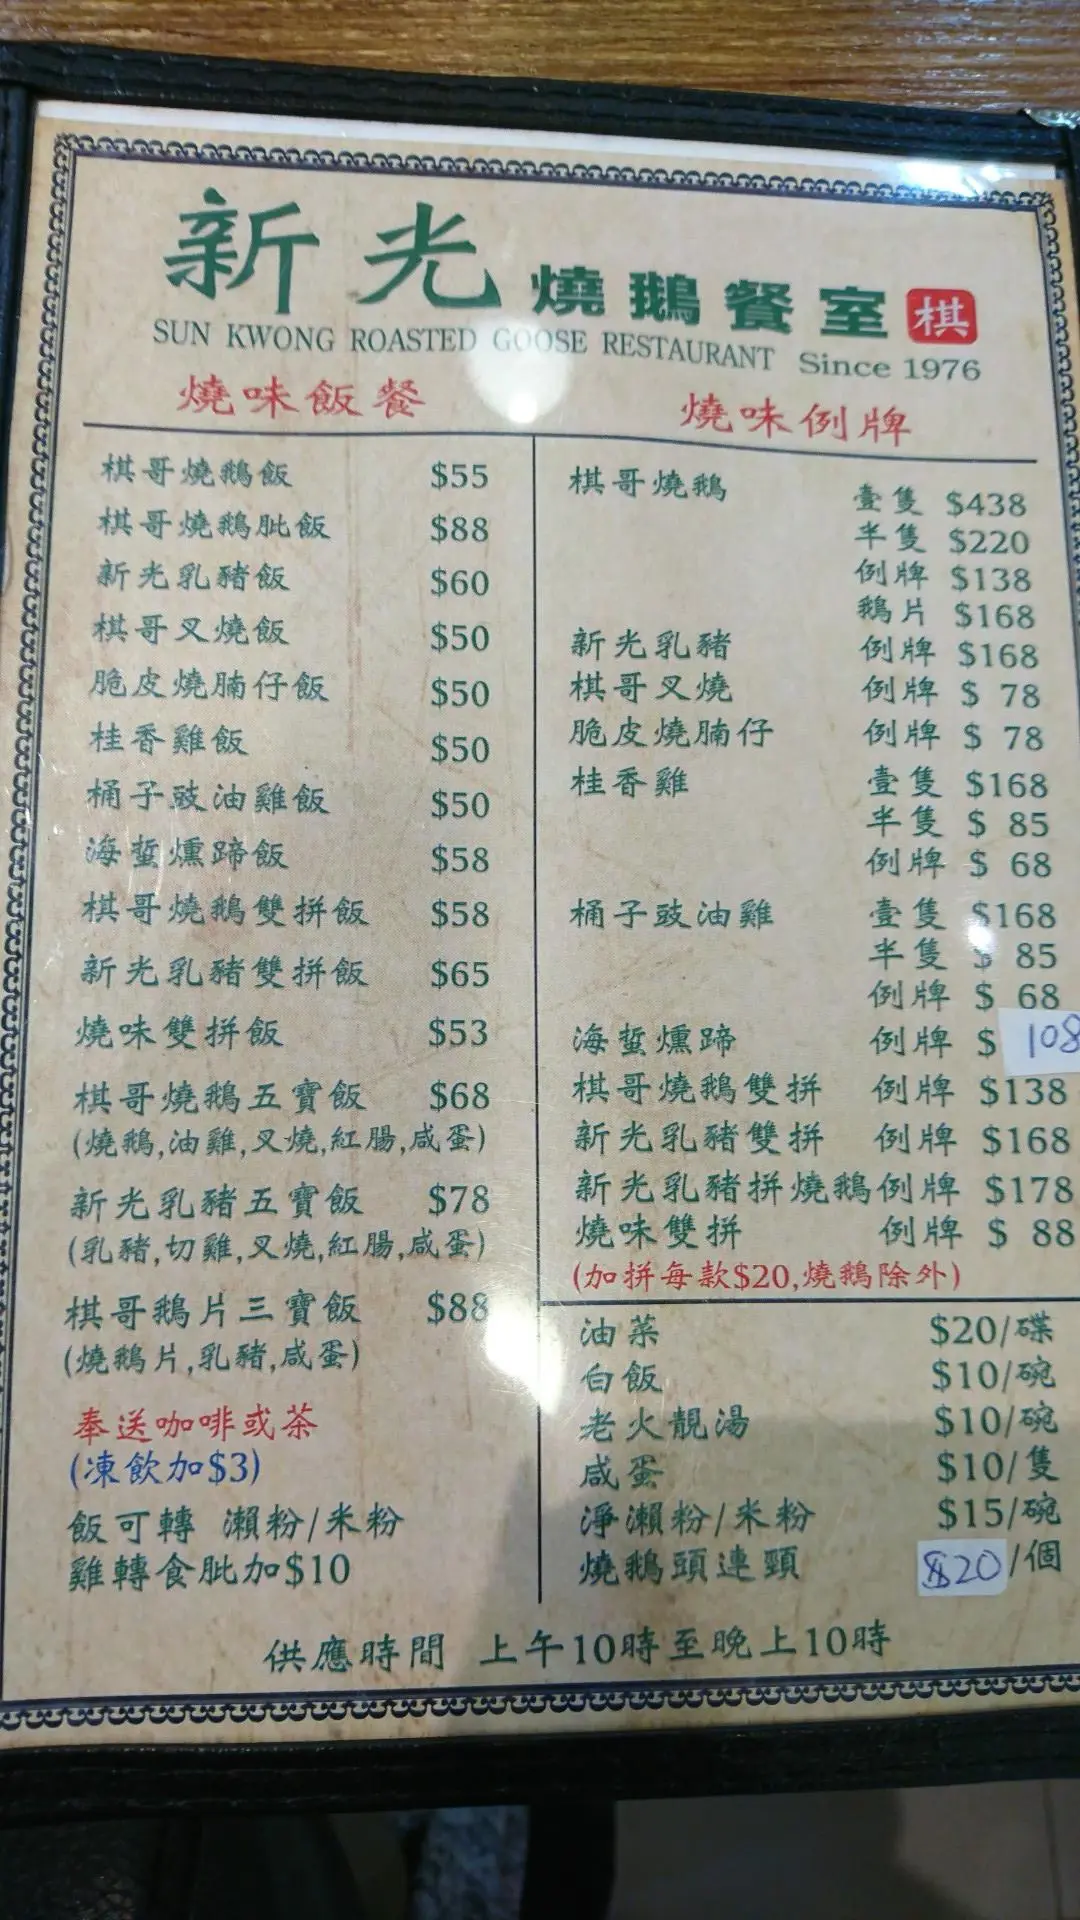 新光燒鵝餐室 棋
SUN KWONG ROASTED GOOSE RESTAURANT Since 1976
燒味飯餐
棋哥燒鵝飯 $55
棋哥燒鵝髀飯 $88
新光乳豬飯 $60
棋哥叉燒飯 $50
脆皮燒腩仔飯 $50
桂香雞飯 $50
桶子豉油雞飯 $50
海蜇燻蹄飯 $58
棋哥燒鵝雙拼飯 $58
新光乳豬雙拼飯 $65
燒味雙拼飯 $53
棋哥燒鵝五寶飯 $68
(燒鵝,油雞,叉燒,紅腸,咸蛋)
新光乳豬五寶飯 $78
(乳豬,切雞,叉燒,紅腸,咸蛋)
棋哥鵝片三寶飯 $88
(燒鵝片,乳豬,咸蛋)
奉送咖啡或茶
(凍飲加$3)
飯可轉 瀨粉/米粉
雞轉食髀加$10
燒味例牌
棋哥燒鵝 壹隻 $438
半隻 $220
例牌 $138
鵝片 $168
新光乳豬 例牌 $168
棋哥叉燒 例牌 $ 78
脆皮燒腩仔 例牌 $ 78
桂香雞 壹隻 $168
半隻 $ 85
例牌 $ 68
桶子豉油雞 壹隻 $168
半隻 $ 85
例牌 $ 68
海蜇燻蹄 例牌 $ 108
棋哥燒鵝雙拼 例牌 $138
新光乳豬雙拼 例牌 $168
新光乳豬拼燒鵝例牌 $178
燒味雙拼 例牌 $ 88
(加拼每款$20,燒鵝除外)
油菜 $20/碟
白飯 $10/碗
老火靚湯 $10/碗
咸蛋 $10/隻
淨瀨粉/米粉 $15/碗
燒鵝頭連頸 $20/個
供應時間 上午10時至晚上10時